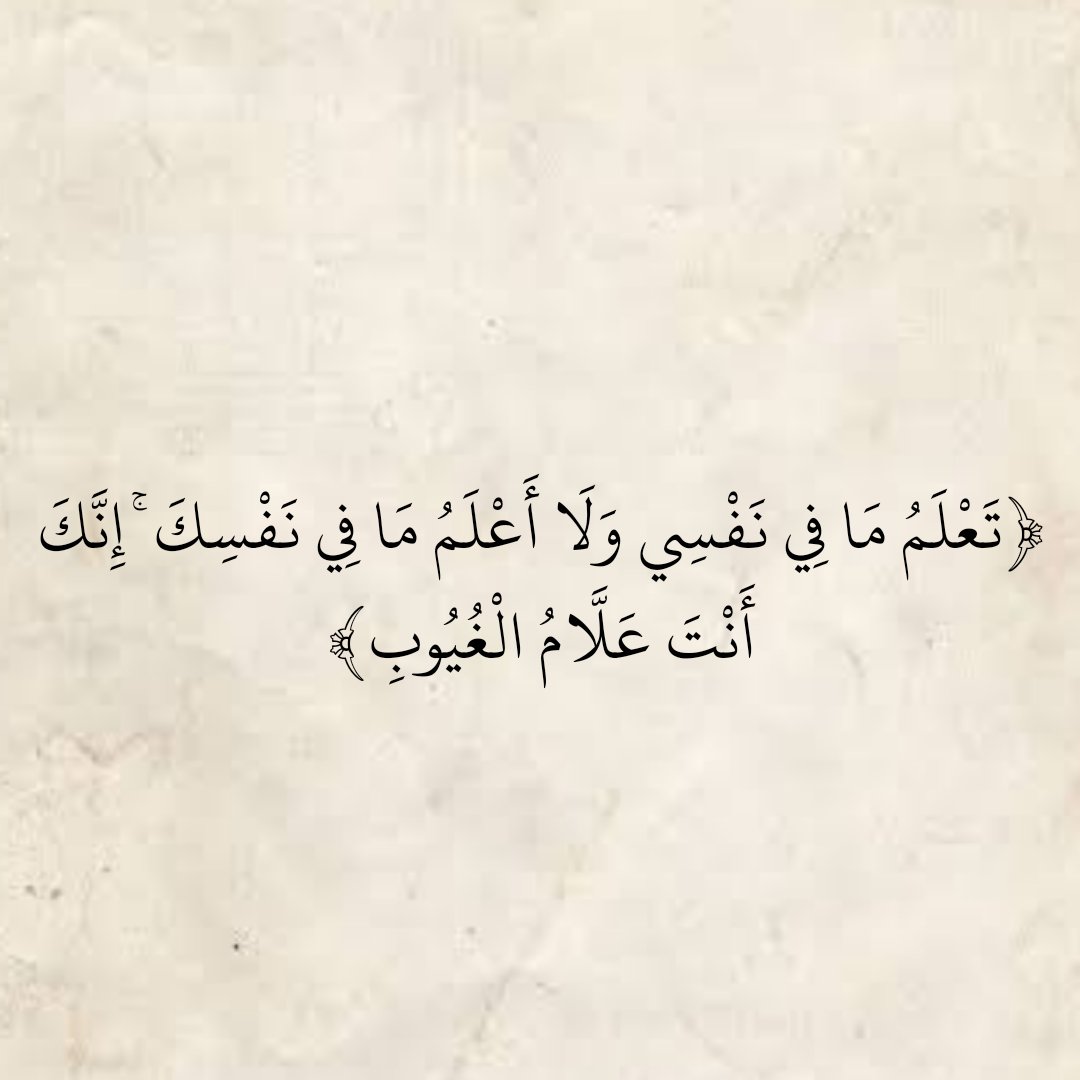 ﴿تَعْلَمُ مَا فِي نَفْسِي وَلَا أَعْلَمُ مَا فِي نَفْسِكَ ۚ إِنَّكَ
أَنْتَ عَلَّامُ الْغُيُوبِ﴾